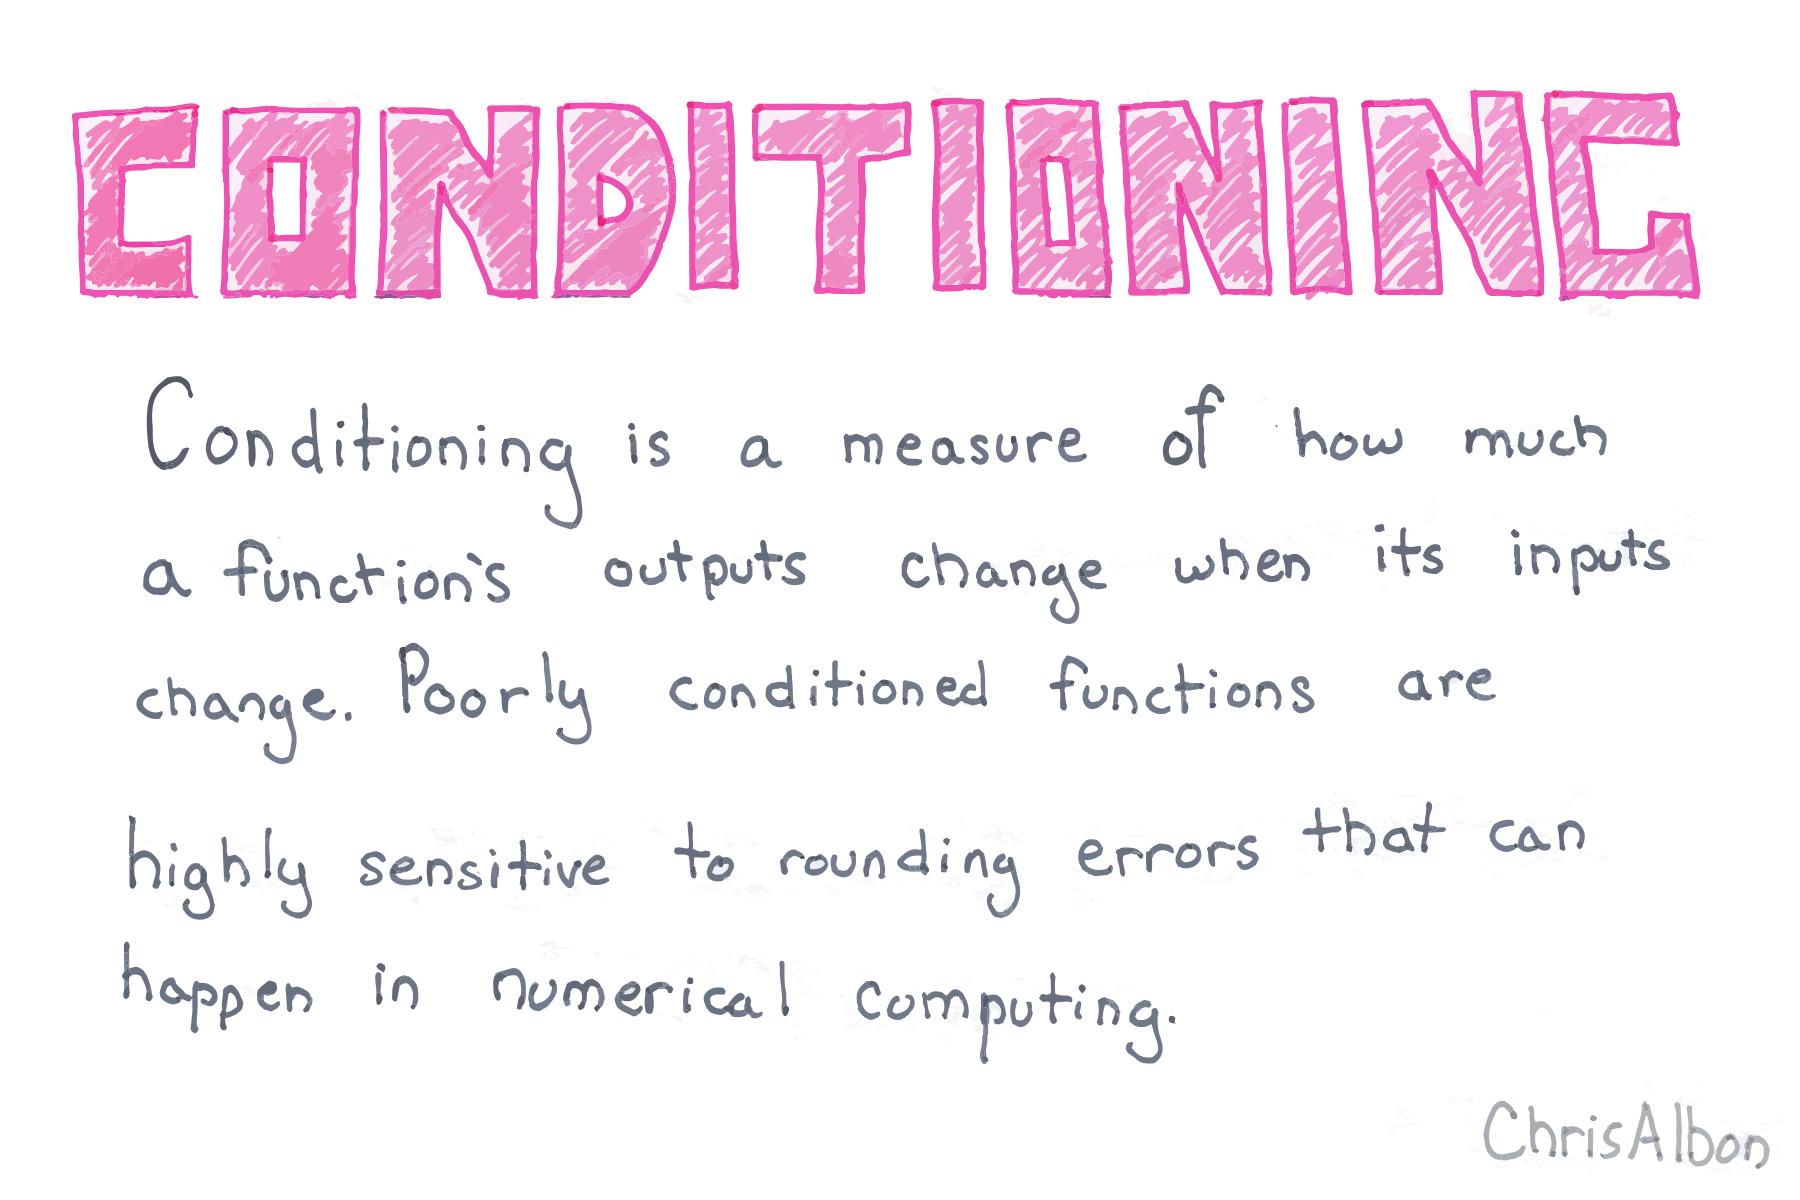 CONDITIONING
Conditioning is a measure of how much
a function's outputs change when its inputs
change. Poorly conditioned functions are
highly sensitive to rounding errors that can
happen in numerical computing.
ChrisAlbon